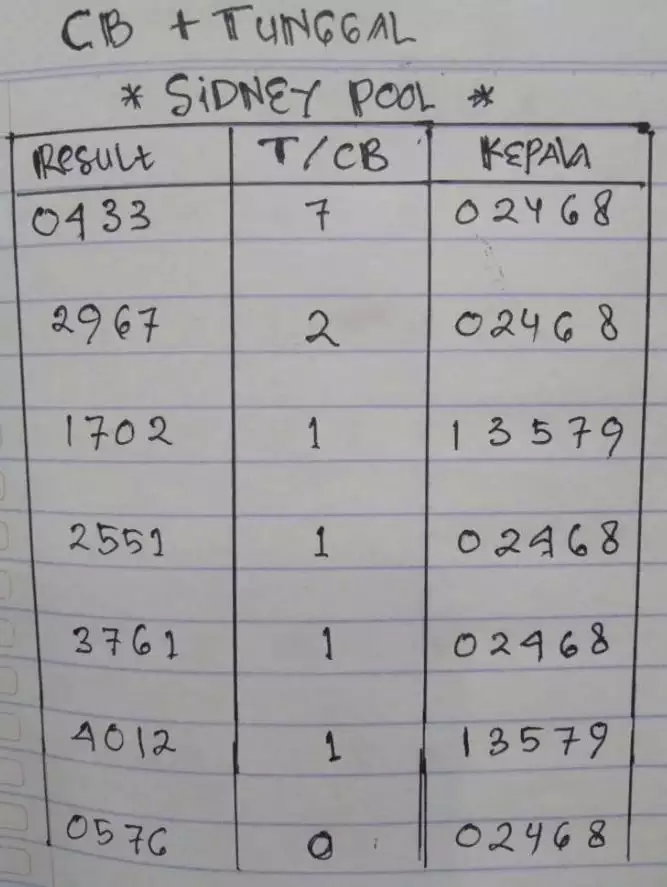 CB + TUNGGAL
* SiDNEY POOL *
RESULT T/CB KEPALA
0433 7 02468
2967 2 02468
1702 1 13579
2551 1 02468
3761 1 02468
4012 1 13579
0576 0 02468